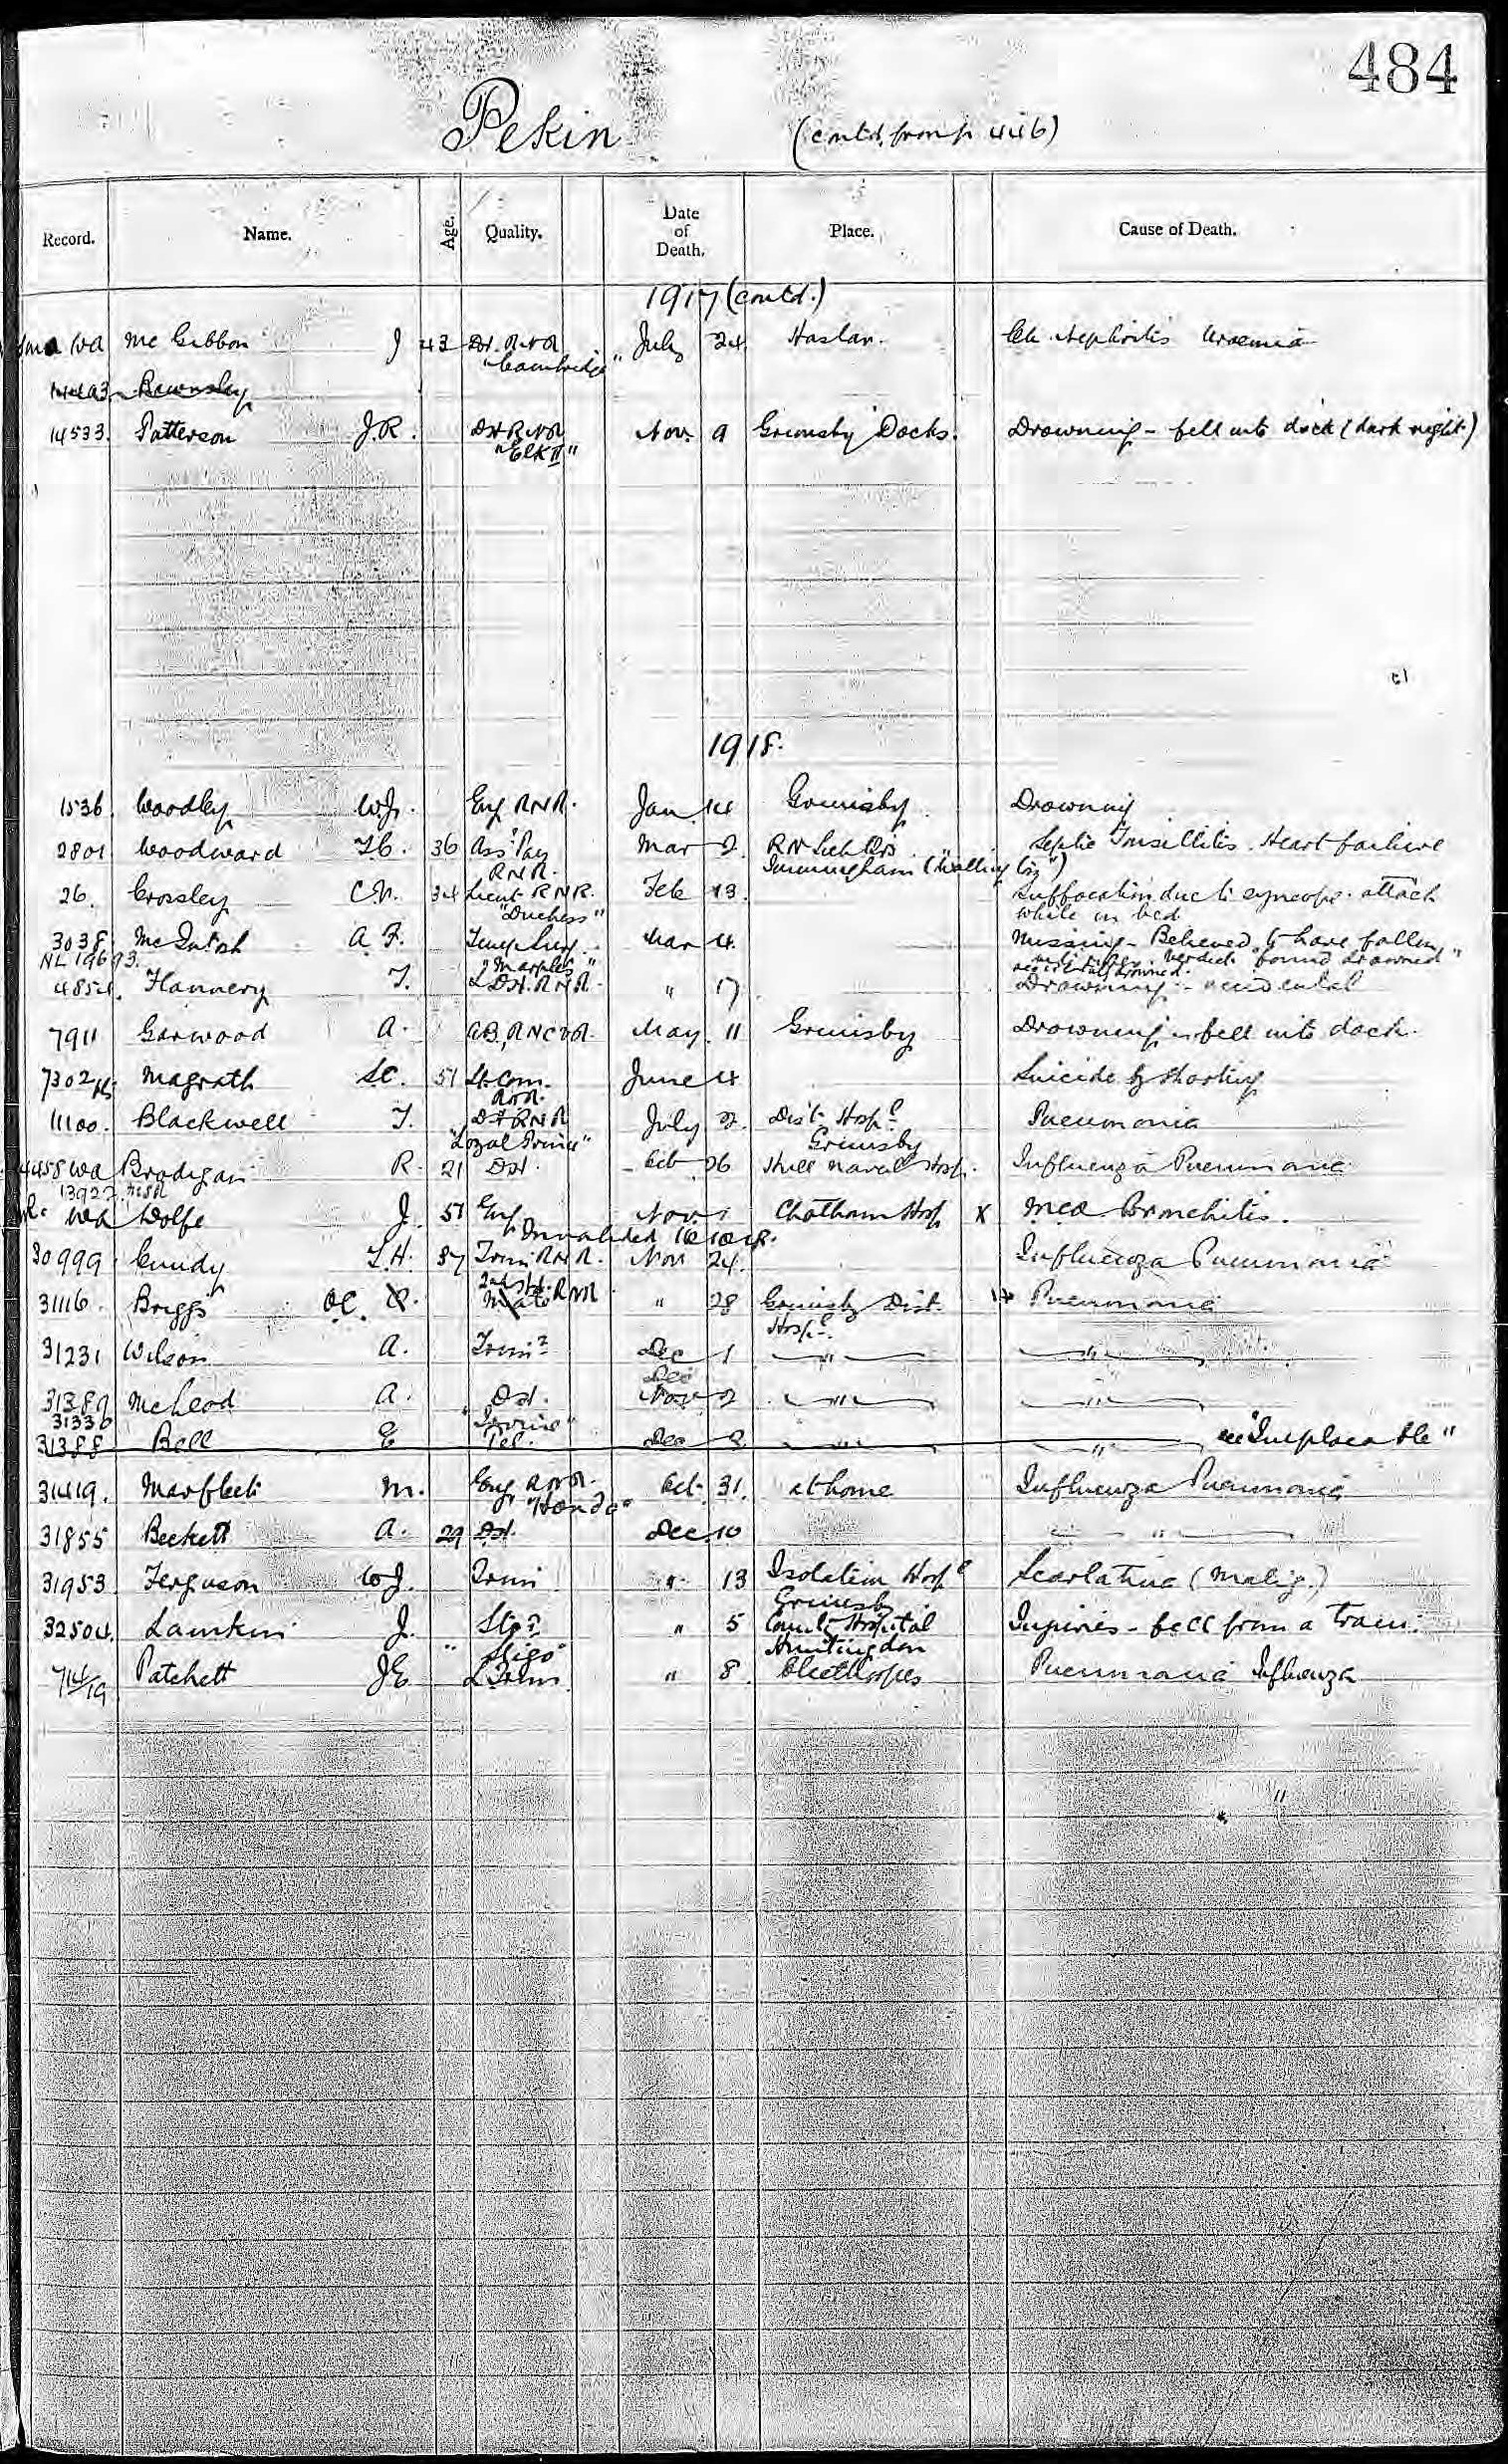 484
Pekin (contd. from p 446)
Record. Name. Age. Quality. Date of Death. Place. Cause of Death.
1917 (contd.)
McGibbon J 43 DH. RNR July 24 Haslar. Ch. Nephritis Uraemia
"Cambridge"
Rawnsley
14533. Patterson J.R. DH RNR Nov. 9 Grimsby Docks. Drowning - fell into dock (dark night)
"Elk II"
1918.
1536. Woodley W.J. Eng RNR. Jan 14 Grimsby. Drowning
2801 Woodward 36 Asst Pay Mar 2. RN Sick Qrs Septic Tonsillitis. Heart failure
RNR. Immingham
26. Crossley 34 Lieut RNR. Feb 13. Suffocation due to syncope. attack
"Duchess" while in bed
3038 McIntosh A.F. Temp Surg. Mar 4. Missing - Believed to have fallen
NL 19693. Verdict "found drowned"
"Marples" accidentally drowned.
4854. Flannery T. DH. RNR. " 17 Drowning - accidental
7911 Garwood A. AB, RNCVR. May 11 Grimsby Drowning - fell into dock.
7302 Magrath 51 Lt Com. June 4 Suicide by shooting
RNR.
11100. Blackwell T. DH RNR July 2. Dist. Hospl Pneumonia
"Loyal Prince" Grimsby
Brodigan R. 21 DH. Oct 26 Hull Naval Hosp. Influenza Pneumonia
13927
Wolfe J. 51 Eng Nov. 1 Chatham Hosp X Bronchitis.
Invalided
30999 Cundy 37 Trim RNR. Nov 24. Influenza Pneumonia
2nd
31116. Briggs RNR " 28 Grimsby Dist. Pneumonia
Hospl.
31231 Wilson A. Trimr Dec 1 " "
Dec
McLeod A. DH. Nov 2 " "
31336
31388 Bell E Tel. Dec 2 " " see "Implacable"
31419. Marfleet M. Eng RNR. Oct. 31. at home Influenza Pneumonia
"Honda"
31855 Beckett A. 29 DH. Dec 10 "
31953 Ferguson W.J. Trim " 13 Isolation Hospl Scarlatina (Malig.)
Grimsby
32504. Lamkin J. Sto? " 5 County Hospital Injuries - fell from a train.
"Sligo" Huntingdon
714/19 Patchett J.E. " 8. Cleethorpes Pneumonia Influenza